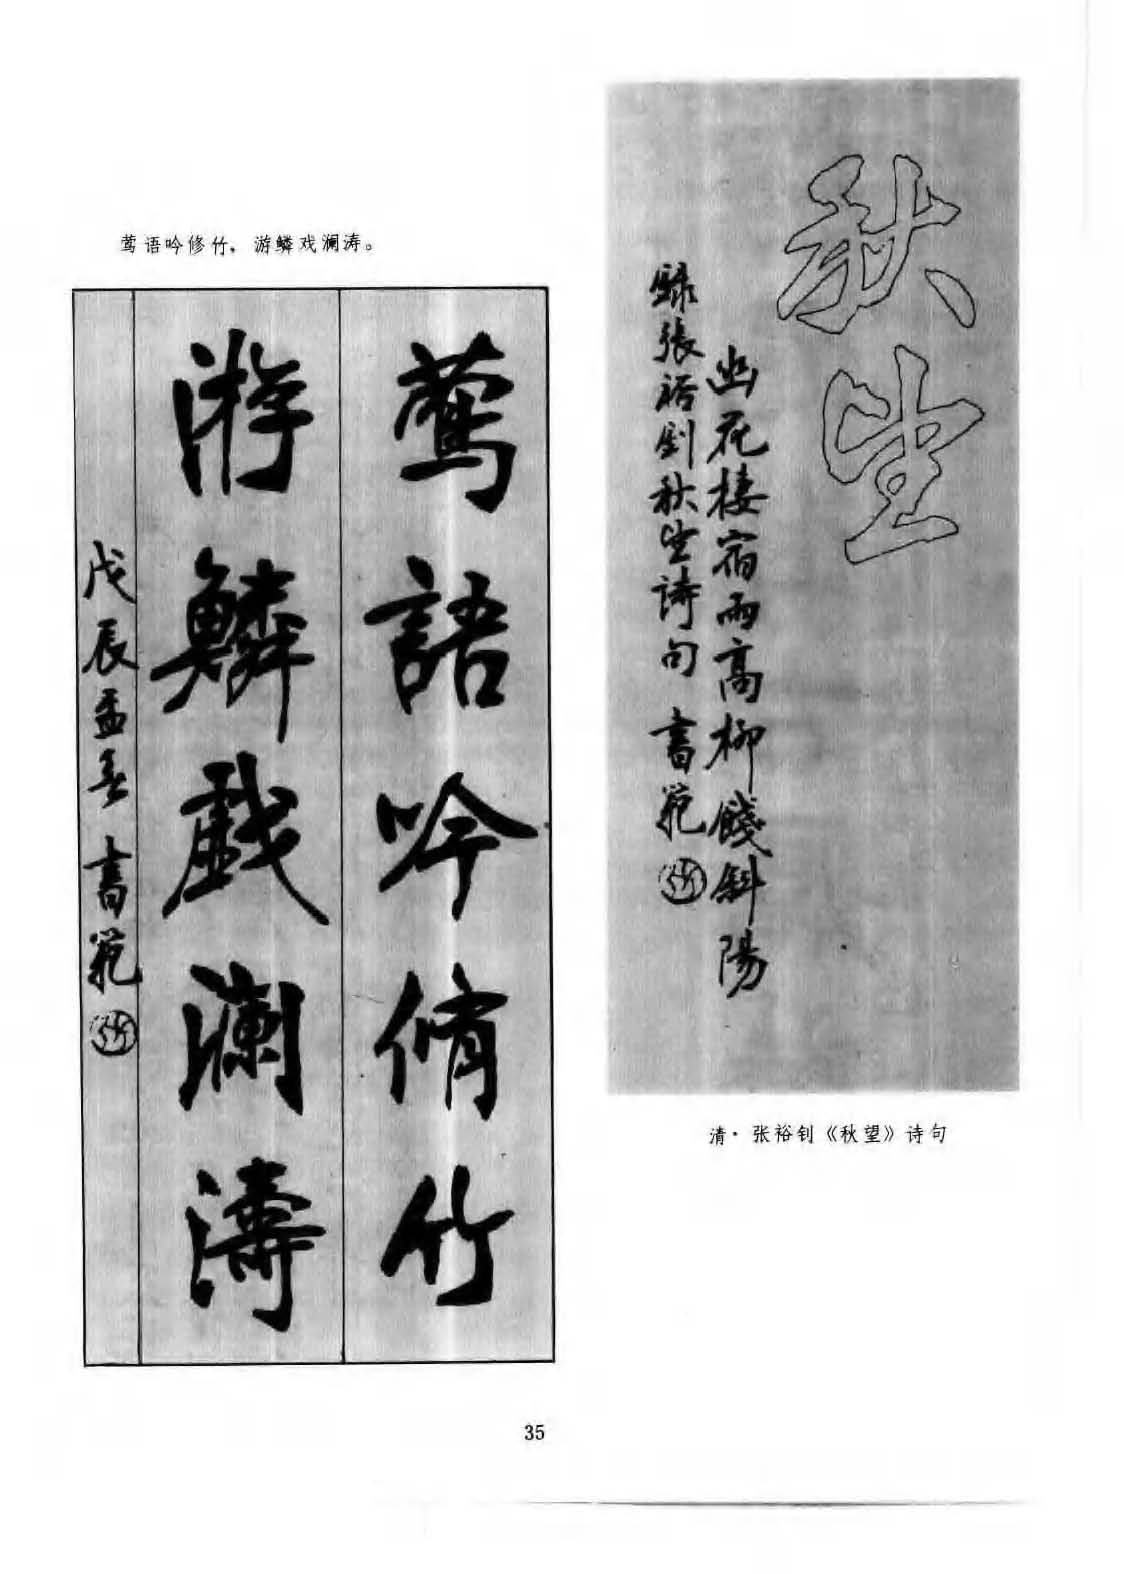 莺语吟修竹，游鳞戏澜涛。
鶯語吟脩竹
游鱗戲瀾濤
戊辰孟春 書範
秋望
幽花棲宿雨高柳餞斜陽
錄張裕釗秋望詩句 書範
清·张裕钊《秋望》诗句
35